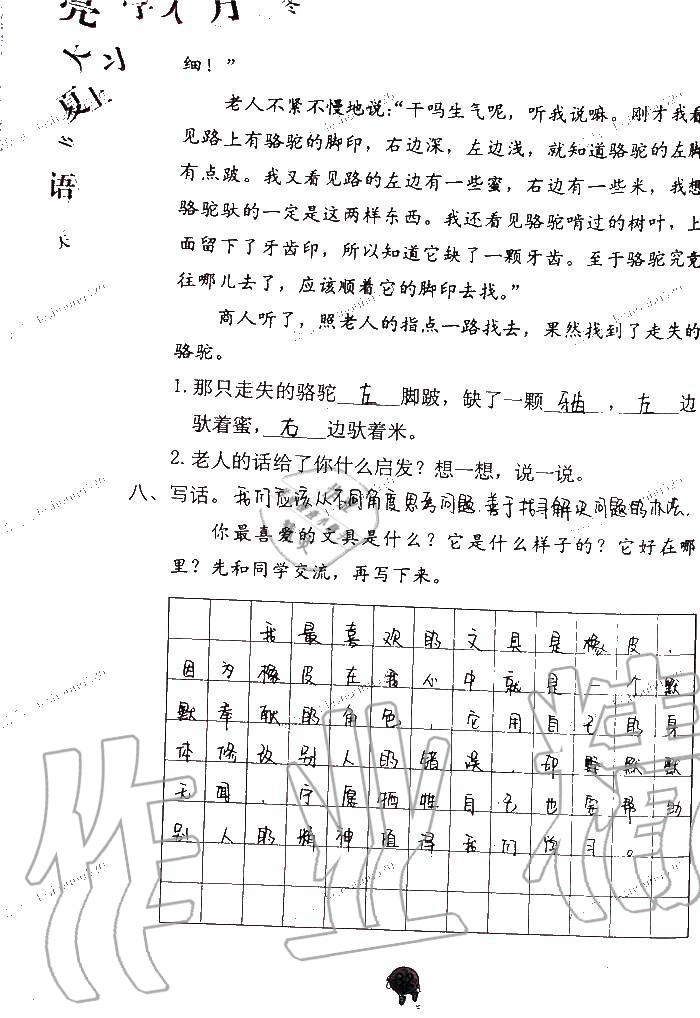 细！”
老人不紧不慢地说：“干吗生气呢，听我说嘛。刚才我看
见路上有骆驼的脚印，右边深，左边浅，就知道骆驼的左脚
有点跛。我又看见路的左边有一些蜜，右边有一些米，我想
骆驼驮的一定是这两样东西。我还看见骆驼啃过的树叶，上
面留下了牙齿印，所以知道它缺了一颗牙齿。至于骆驼究竟
往哪儿去了，应该顺着它的脚印去找。”
商人听了，照老人的指点一路找去，果然找到了走失的
骆驼。
1. 那只走失的骆驼 左 脚跛，缺了一颗 牙齿 ， 左 边
驮着蜜， 右 边驮着米。
2. 老人的话给了你什么启发？想一想，说一说。
八、写话。我们应该从不同角度思考问题，善于找寻解决问题的办法。
你最喜爱的文具是什么？它是什么样子的？它好在哪
里？先和同学交流，再写下来。
我最喜欢的文具是橡皮，
因为橡皮在我心中就是一个默
默奉献的角色，它用自己的身
体修改别人的错误，却默默
无闻，宁愿牺牲自己也要帮助
别人的精神值得我们学习。
作业精